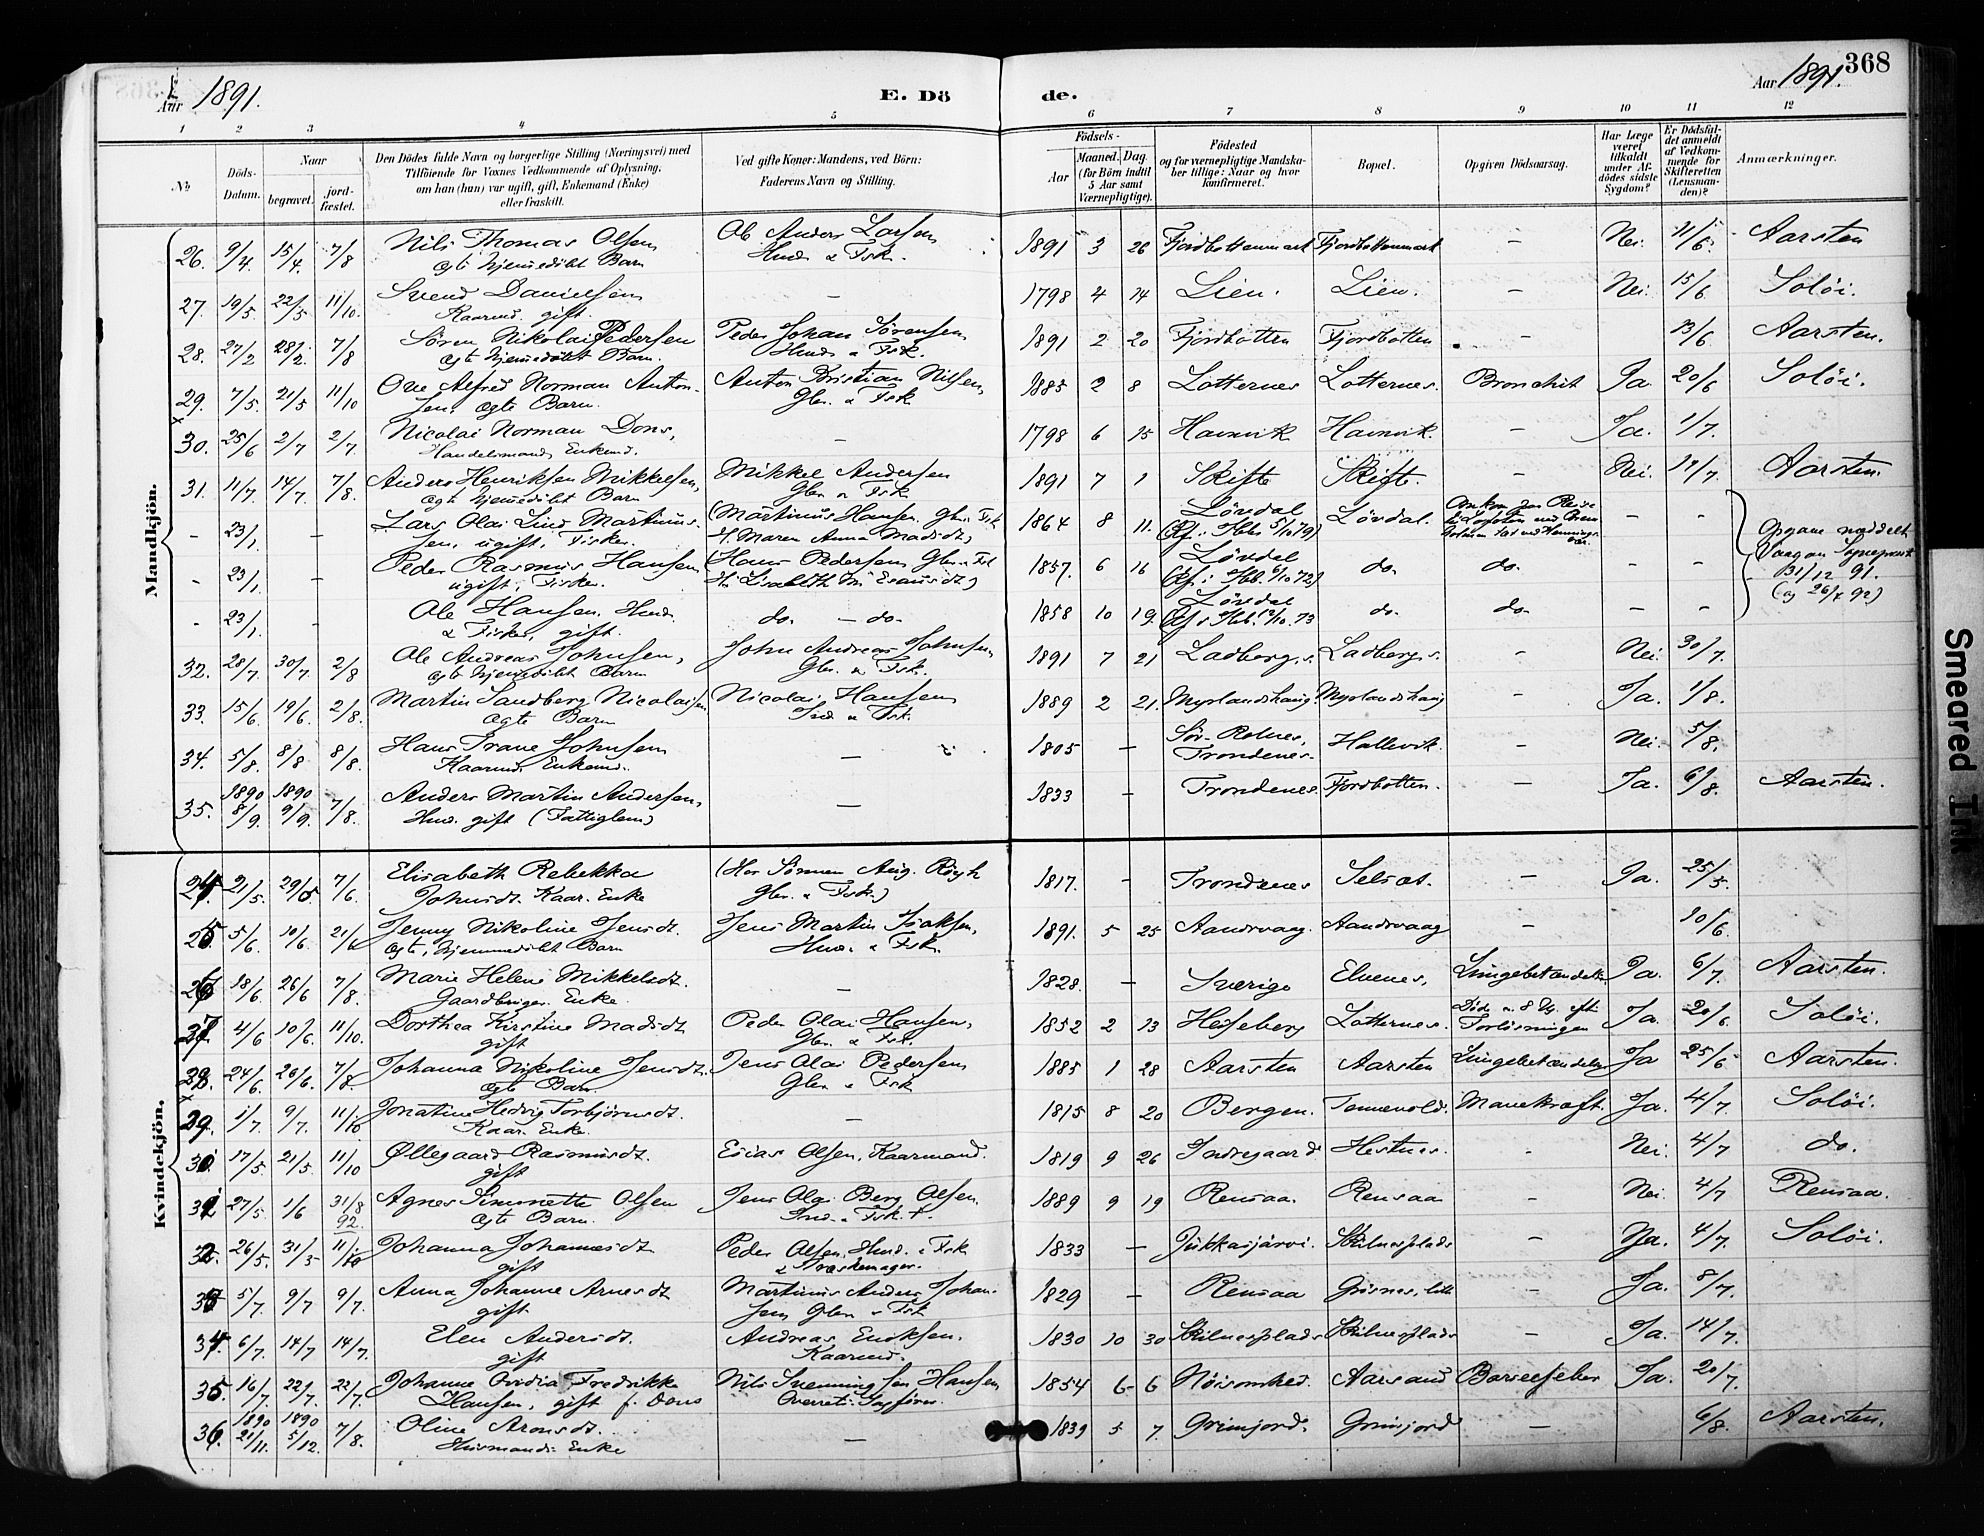 Aar 1891.
E. Dö
de.
Aar 1891.
368
1 2 3 4 5 6 7 8 9 10 11 12
No
Döds-Datum.
Naar
begravet.
jordfæstet.
Den Dödes fulde Navn og borgerlige Stilling (Næringsvei) med
Tilföiende for Voxnes Vedkommende af Oplysning,
om han (hun) var ugift, gift, Enkemand (Enke)
eller fraskilt.
Ved gifte Koner: Mandens, ved Börn:
Faderens Navn og Stilling.
Födsels-
Aar
Maaned. Dag.
(for Börn indtil
5 Aar samt
Værnepligtige).
Födested
og for værnepligtige Mandska-
ber tillige: Naar og hvor
konfirmeret.
Bopæl.
Opgiven Dödsaarsag.
Har Læge
været
tilkaldt
under Af-
dödes sidste
Sygdom?
Er Dödsfal-
det anmeldt
af Vedkom-
mende for
Skifteretten
(Lensman-
den)?
Anmærkninger.
Mandkjön.
26. 9/4. 15/4. 7/8 Nils Thomas Olsen Ole Anders Larsen 1891 3 26 Fjordbottenmark Fjordbottenmark – Nei. 11/6. Aarsten
ægte hjemmedöbt Barn Husm. & Fisk.
27. 19/5. 22/5 11/10. Svend Danielsen – 1798 4 14 Lien. Lien. – Nei. 15/6. Soløi.
Kaarmd. gift.
28. 27/2 28/2. 7/8 Søren Nikolai Pedersen Peder Johan Sørensen 1891 2 20 Fjordbotten Fjordbotten – 13/6 Aarsten.
ægte hjemmedöbt Barn. Husm. & Fisk.
29. 7/5. 21/5 11/10 Ove Alfred Norman Anton- Anton Kristian Nilsen, 1885 2 8 Lotternes Lotternes. Bronchit Ja. 20/6 Soløi.
sen, ægte Barn. Gbr. & Fsk
30. 25/6 2/7 2/7. Nicolai Norman Dons, – 1798 6 15 Havnvik Havnvik. – Ja. 1/7.
Handelsmand, Enkemd.
31. 11/7. 14/7. 7/8. Anders Henriksen Mikkelsen, Mikkel Andersen 1891 7 1 Skifte Skifte. – Nei. 17/7. Aarsten.
ægte hjemmedöbt Barn Gbr. & Fisk
- 23/1. – Lars Olai Lind Martinus- (Martinus Hansen Gbr. Fsk 1864 8 11. Løvdal Løvdal. Omkom paa Reise – –
sen, ugift, Fisker. H. Maren Anna Madsdt)
- 23/1. – Peder Rasmus Hansen (Hans Pedersen Gbr. & Fsk 1857. 6 16 Løvdal do. do. – – 31/12 91.
ugift, Fisker.
- 23/1. – Ole Hansen, Husm. do. – do. 1858 10 19. Løvdal do. do. – –
& Fisker, gift.
32. 28/7. 30/7. 2/8 Ole Andreas Johnsen, John Andreas Johnsen, 1891 7 21 Ladberg, s. Ladberg, s. – Nei. 30/7.
ægte hjemmedöbt Barn Gbr. & Fsk.
33. 15/6. 19/6. 2/8. Martin Sandberg Nicolaisen Nicolai Hansen 1889 2 21. Myrlandshaug. Myrlandshaug – Ja. 1/8.
ægte Barn Ind. & Fsk.
34. 5/8. 8/8 8/8. Hans Trane Johnsen – 1805 – Sör-Rolnes, Trondenes. Hallevik. – Nei. 5/8.
Kaarmd. Enkemd.
35. 1890 8/9. 1890 9/9. 7/8. Anders Martin Andersen, – 1833 – Trondenes Fjordbotten. – Ja. 6/8. Aarsten.
Husm. gift (Fattiglem)
Kvindekjön.
24. 21/5. 29/5 7/6 Elisabeth Rebekka (Hos Sörmen Aug. Röyh 1817. – Trondenes Selsæt. – Ja. 25/5.
Johnsdt. Kaar. Enke Gbr. & Fsk.)
25 5/6 10/6. 21/6 Jenny Nikoline Jensdt. Jens Martin Isaksen, 1891. 5 25 Aandvaag. Aandvaag – 10/6.
ægte, hjemmedöbt Barn Husm. & Fsk.
26 18/6. 26/6 7/8. Marie Helene Mikkelsdt. – 1828. – Sverige Elvenes, Lungebetændelse Ja. 6/7. Aarsten.
Gaardbruger Enke.
27. 4/6 10/6. 11/10. Dorthea Kirstine Madsdt. Peder Olai Hansen, 1852 2 13 Hesseberg Lotternes. Døde 8 Dg. efter Forlösningen Ja. 20/6. Soløi.
gift Gbr. & Fsk.
28. 24/6. 26/6. 7/8. Johanna Nikoline Jensdt. Jens Olai Pedersen 1885 1 28 Aarsten Aarsten Lungebetændelse Ja 25/6 Aarsten.
ægte Barn Gbr. & Fsk
29. 1/7. 9/7. 11/10 Jonatine Hedvig Torbjörnsdt. – 1815 8 20 Bergen. Tennevold. Mavekræft. Ja. 4/7. Soløi.
Kaar. Enke.
30. 17/5. 21/5. 11/10 Øllegaard Rasmusdt. Esias Olsen, Kaarmand. 1819 9 26 Indregaard Hestnes. - Nei. 4/7 do.
gift
31 27/5. 1/6 31/8 92. Agnes Simonette Olsen Jens Olai Berg Olsen 1889 9 19 Rensaa. Rensaa – Nei. 4/7 Rensaa.
ægte Barn. Ind. & Fsk.
32. 26/5. 31/5 11/10 Johanna Johannesdt Peder Olsen, Husm. & Fsk 1833 – Jukkasjärvi. Skilnesplads – Ja. 4/7. Soløi.
gift
33 5/7. 9/7 9/7. Anna Johanne Arnesdt Martinus Anders Johan- 1829 – Rensaa – Ja. 8/7.
gift. sen, Gbr. & Fsk
34. 6/7. 14/7 14/7. Elen Andersdt. Andreas Eriksen. 1830 10 30 Skilnesplads Skilnesplads – Ja. 14/7.
gift Kaarmd.
35 16/7. 22/7. 22/7. Johanne Ovidia Fredrikke Nils Svenningsen Hansen 1854 6 6 Nöisomhed. Aarsand Barselfeber Ja. 20/7.
Hansen, gift f. Dons Overrets-Sagförer.
36. 1890 21/11. 1890 5/12. 7/8. Oline Aronsdt. – 1839 5 7. Grimjord Grimjord – 6/8. Aarsten.
Husmands Enke
Smeared Ink